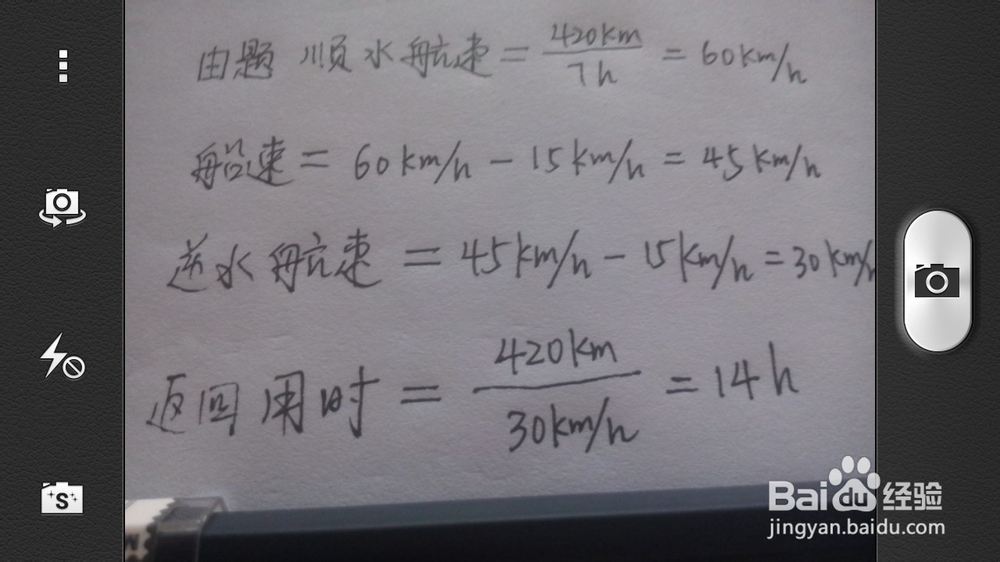 由题 顺水航速 = 420km/7h = 60km/h
船速 = 60km/h - 15km/h = 45km/h
逆水航速 = 45km/h - 15km/h = 30km/h
返回用时 = 420km/30km/h = 14h
S
Baidu经验
jingyan.baidu.com